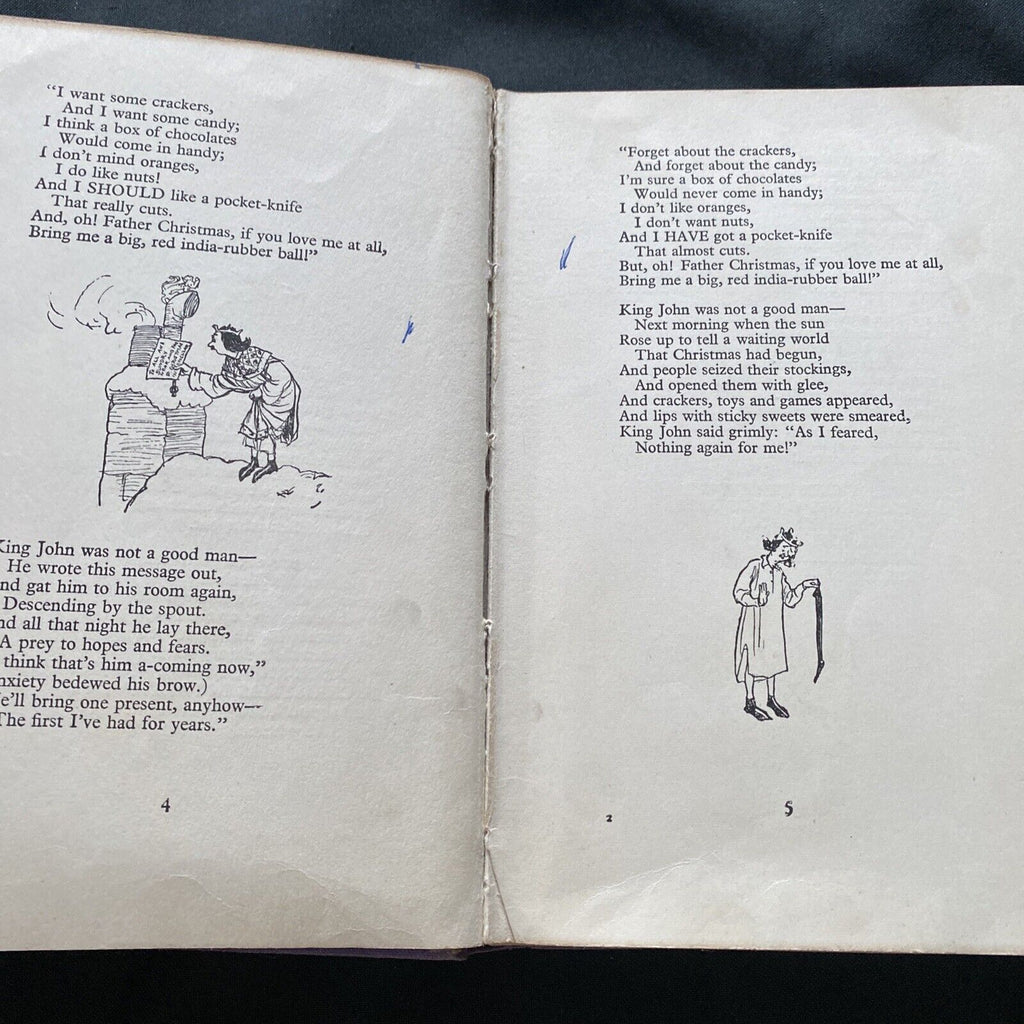 "I want some crackers,
And I want some candy;
I think a box of chocolates
Would come in handy;
I don't mind oranges,
I do like nuts!
And I SHOULD like a pocket-knife
That really cuts.
And, oh! Father Christmas, if you love me at all,
Bring me a big, red india-rubber ball!"
King John was not a good man—
He wrote this message out,
nd gat him to his room again,
Descending by the spout.
nd all that night he lay there,
A prey to hopes and fears.
think that's him a-coming now,"
nxiety bedewed his brow.)
e'll bring one present, anyhow—
The first I've had for years."
4
"Forget about the crackers,
And forget about the candy;
I'm sure a box of chocolates
Would never come in handy;
I don't like oranges,
I don't want nuts,
And I HAVE got a pocket-knife
That almost cuts.
But, oh! Father Christmas, if you love me at all,
Bring me a big, red india-rubber ball!"
King John was not a good man—
Next morning when the sun
Rose up to tell a waiting world
That Christmas had begun,
And people seized their stockings,
And opened them with glee,
And crackers, toys and games appeared,
And lips with sticky sweets were smeared,
King John said grimly: "As I feared,
Nothing again for me!"
2
5